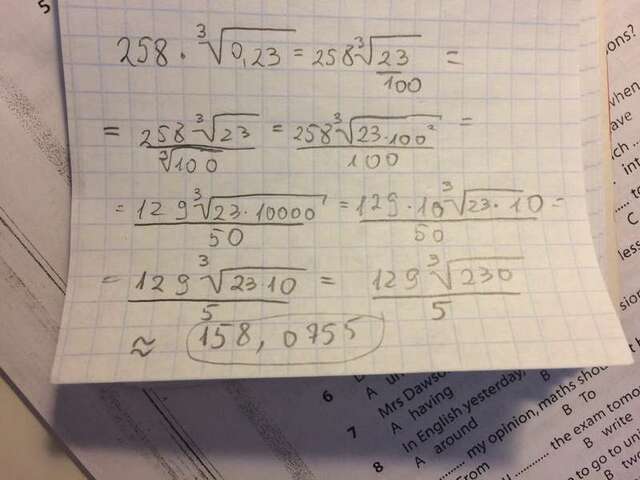 258 · ³√0,23 = 258 ³√23/100 =
= 258 ³√23 / ³√100 = 258 ³√23·100² / 100 =
= 129 ³√23·10000 / 50 = 129·10 ³√23·10 / 50 =
= 129 ³√23·10 / 5 = 129 ³√230 / 5
≈ 158,0755
5
ons?
when
ave
ch ..
int
to
C
less
sion
6
A un
7 Mrs Dawso
A having
In English yesterday,
8
A around
B To
my opinion, maths shou
From
the exam tomo
B write
e to go to uni
B two